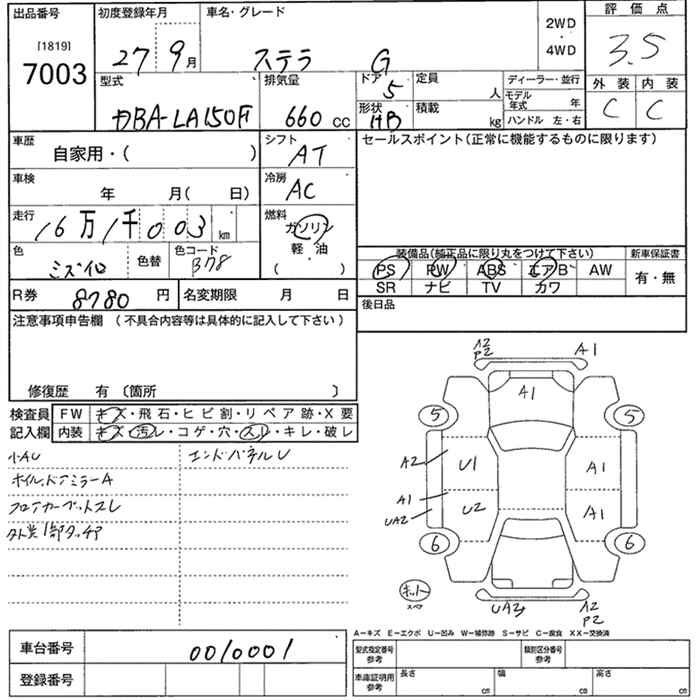 出品番号 初度登録年月 車名・グレード 2WD 4WD 評価点
[1819]
7003 27 9月 ステラ G 3.5
型式 排気量 ドア 5 定員 人 ディーラー・並行 外装 内装
DBA-LA150F 660cc 形状 HB 積載 kg モデル年式 年 C C
ハンドル 左・右
車歴 シフト セールスポイント(正常に機能するものに限ります)
自家用・( ) AT
車検 冷房
年 月( 日) AC
走行 燃料
16万1千003km ガソリン
軽・油
( ・ )
色 色替 色コード 装備品(純正品に限り丸をつけて下さい) 新車保証書
ミズ色 B78 PS PW ABS エアB AW 有・無
SR ナビ TV カワ
R券 8780円 名変期限 月 日 後日品
注意事項申告欄(不具合内容等は具体的に記入して下さい)
修復歴 有〔箇所 〕
検査員 FW キズ・飛石・ヒビ割・リペア跡・X要
記入欄 内装 キズ・汚レ・コゲ・穴・スレ・キレ・破レ
小AU エンドパネルU
ホイル,ドアミラーA
フロアカーペットスレ
外装1部タッチア
A2 P2 A1
A1
5 5
A2 U1 A1
A1 UA2 U2 A1
6 6
ホット
スペア
UA2 A2 P2
A－キズ E－エクボ U－凹み W－補修跡 S－サビ C－腐食 XX－交換済
車台番号 0010001 型式指定番号 参考 類別区分番号 参考
登録番号 車庫証明用 参考 長さ cm 幅 cm 高さ cm